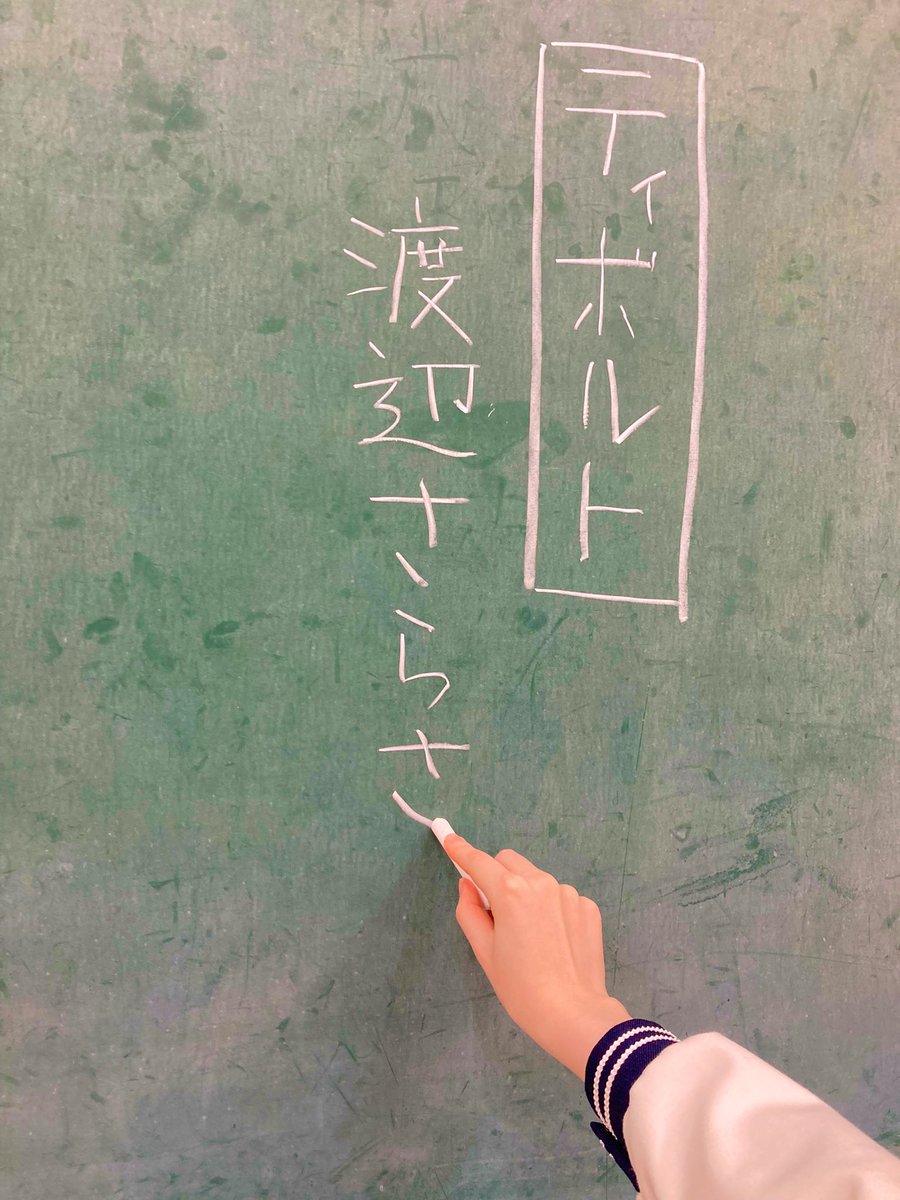 ティボルト
渡辺さらさ